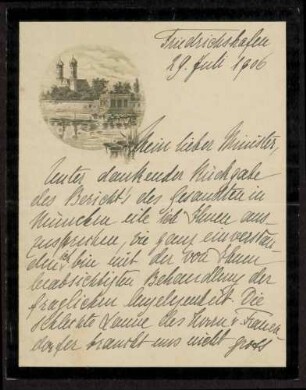 Friedrichshafen
29. Juli 1906
Mein lieber Minister,
Unter dankender Rückgabe
des Berichts des Gesandten in
München eile Ich Ihnen aus-
zusprechen, wie ganz einverstan-
den ich bin mit der von Ihnen
beabsichtigten Behandlung der
fraglichen Angelegenheit. Die
schlechte Laune des Herrn v.
dorfer braucht uns nicht groß